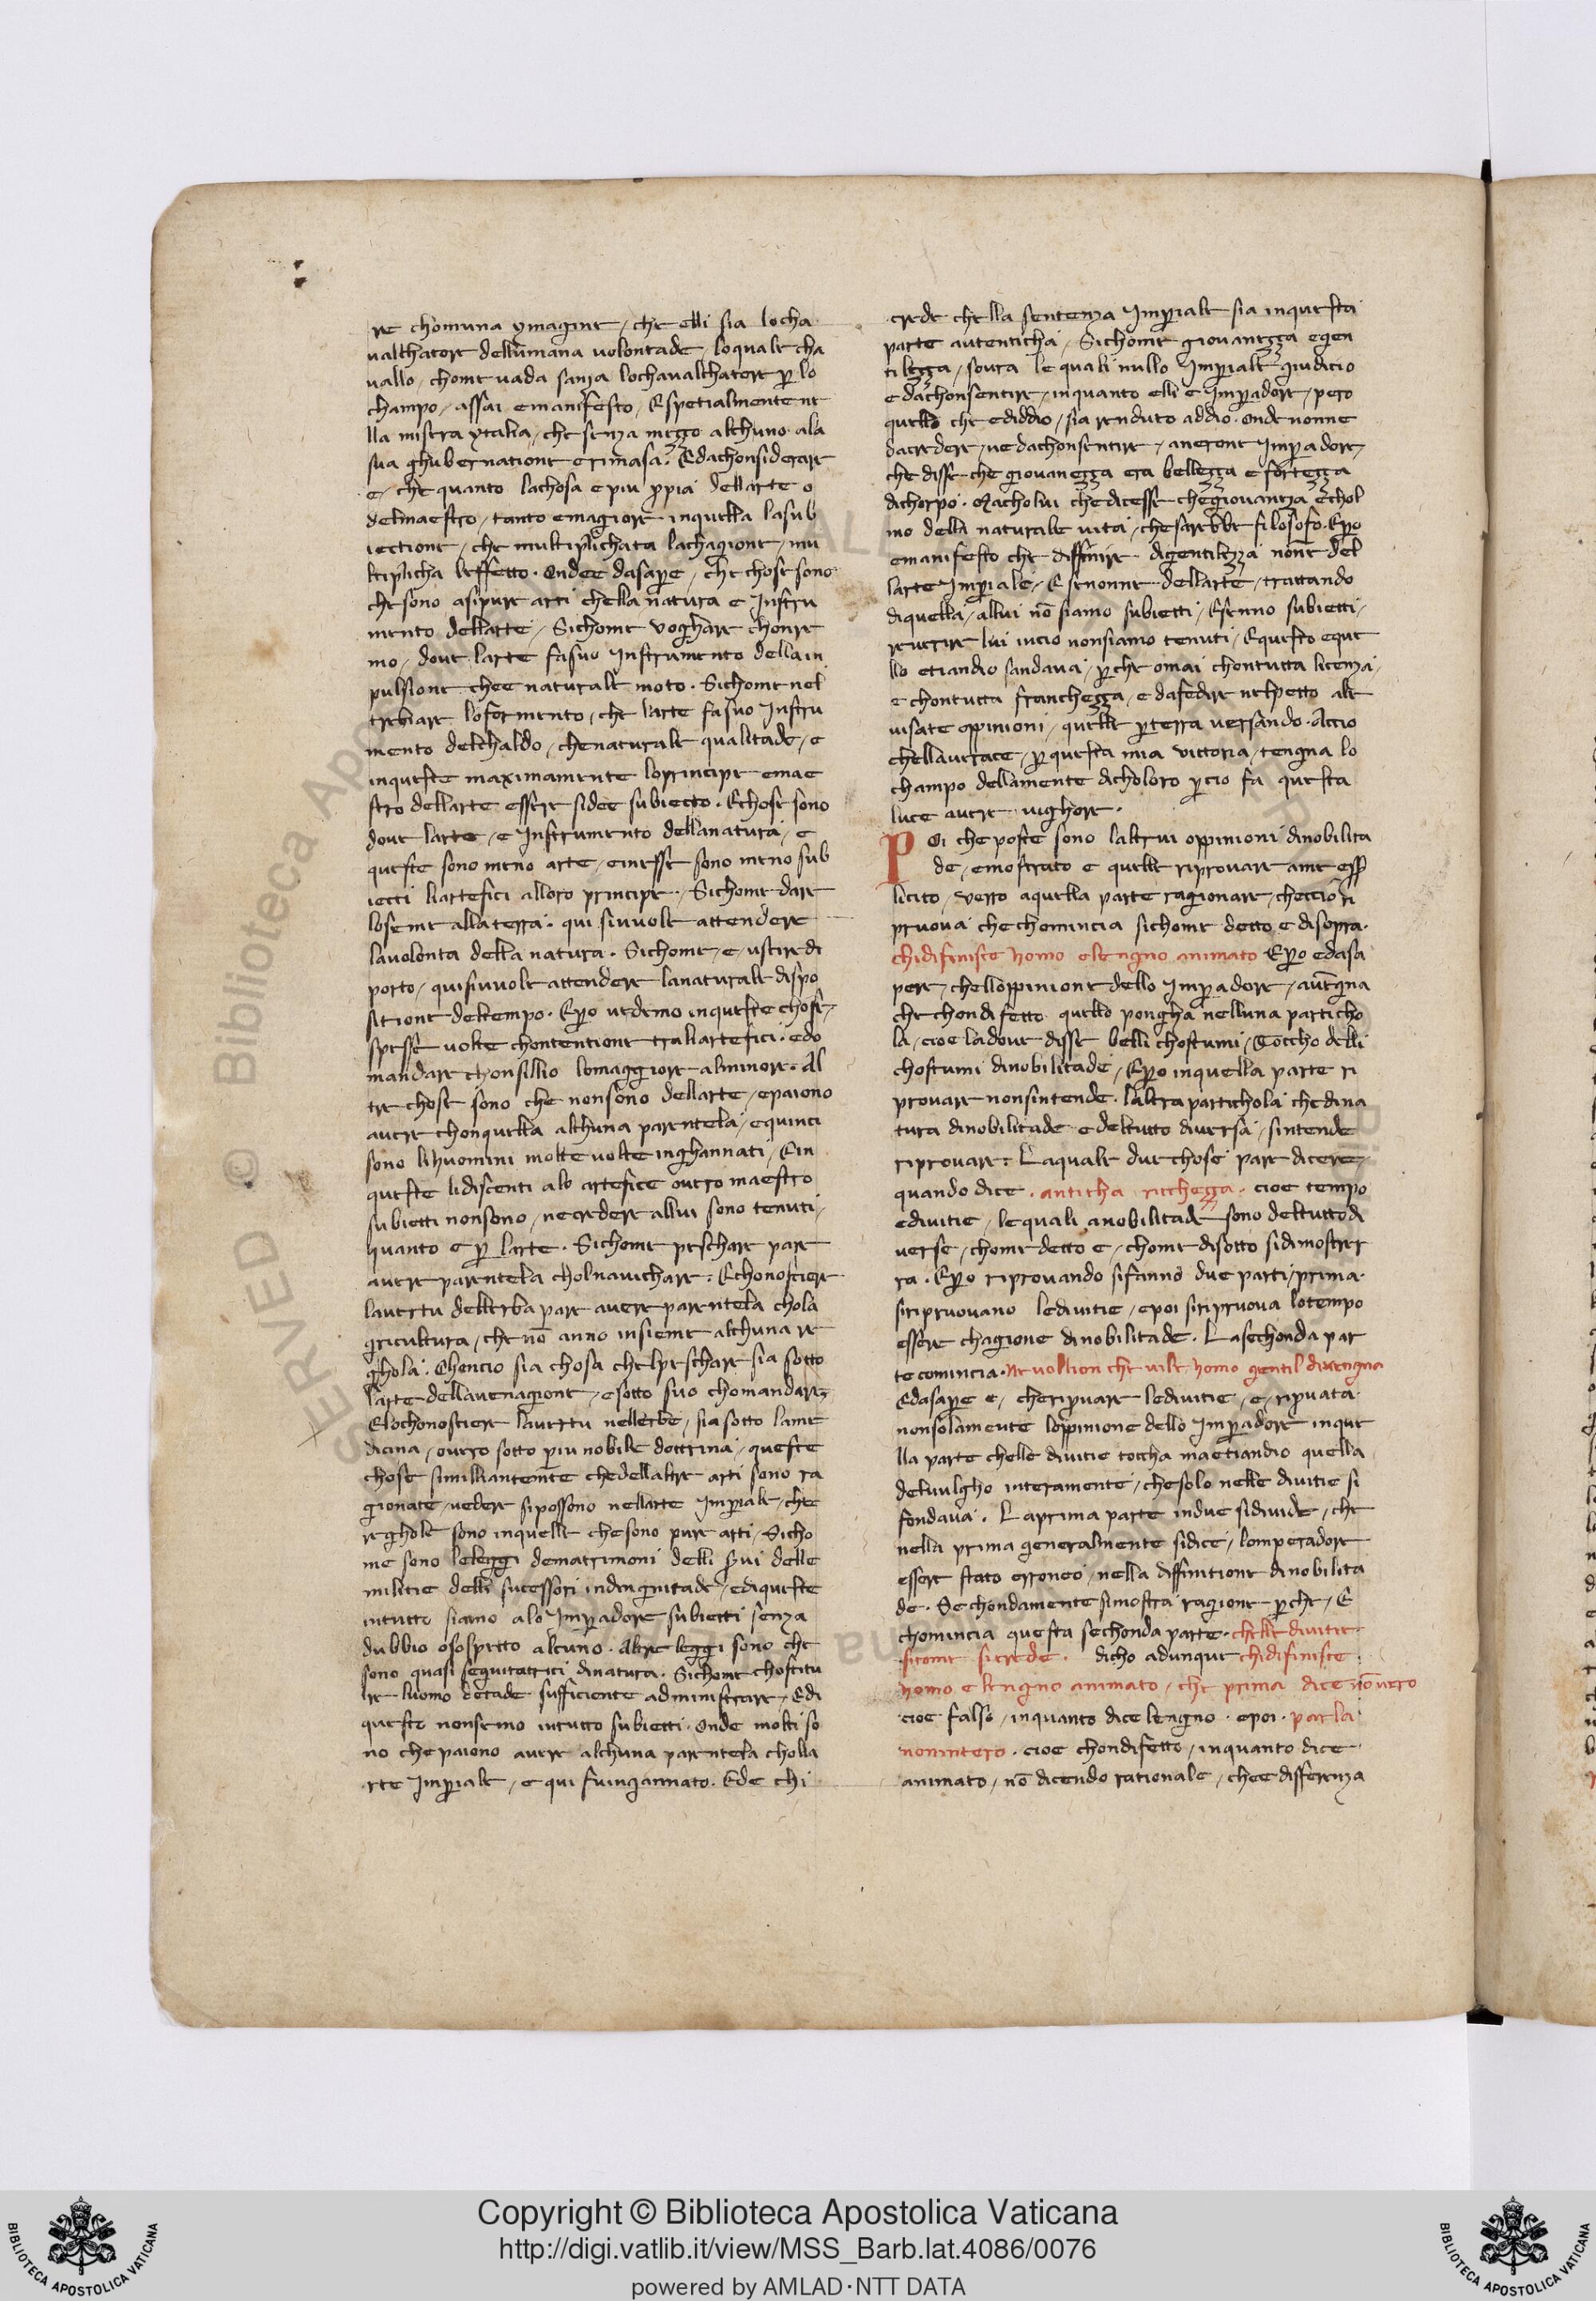 re chomuna ymagine / che elli sia locha
ualchatore dellumana uolontade / loquale cha
uallo / chome uada sanza lochaualchatore p lo
champo / assai emanifesto / Espetialmentene
lla misera ytalia / che senza mezzo alchuno ala
sua ghubernatione erimasa. Edachonsiderare
e / che quanto lachosa epiu ppia dellarte o
delmaestro / tanto emagiore inquella lasub
iectione / che multiplichata lachagione / mu
ltiplicha leffetto. Ondee dasape / che chose sono
che sono asipure arti chella natura e Instru
mento dellarte / Sichome uoghare chonre
mo / doue larte fasuo Instrumento della in
pulsione chee naturale moto. Sichome nel
trebiare loformento / che larte fasuo Instru
mento delchaldo / chenaturale qualitade / e
inqueste maximamente loprincipe emae
stro dellarte essere sidee subiecto. Echose sono
doue larte / e Instrumento dellanatura / e
queste sono meno arte / einesse sono meno sub
iecti liartefici alloro principe / Sichome dare
loseme allaterra. qui siuuole attendere
lauolonta della natura. Sichome / e / uscire di
porto / quisiuuole attendere lanaturale dispo
sitione deltempo. Epo uedemo inqueste chose /
spesse uolte chontentione traliartefici. edo
mandare chonsillio lomaggiore alminore. Al
tre chose sono che nonsono dellarte / epaiono
auere chonquella alchuna parentela / equinci
sono lihuomini molte uolte inghannati / Ein
queste lidiscenti alo artefice ouero maestro
subietti nonsono / necredere allui sono tenuti /
quanto e p larte. Sichome peschare pare
auere parentela cholnauichare. Echonosciere
lauertu dellerba pare auere parentela chola
gricultura / che nō anno insieme alchuna re
ghola. Choncio sia chosa chelpeschare sia sotto
larte dellauenagione / esotto suo chomandare
Elochonosciere lauertu nellerbe / sia sotto lame
dicina / ouero sotto piu nobile dottrina / queste
chose simillianteme̅te chedellaltre arti sono ra
gionate / uedere sipossono nellarte Impiale / che
reghole sono inquelle chesono pure arti / Sicho
me sono leleggi dematrimoni delli s̅ui delle
militie delli sucessori indingnitade / ediqueste
intutto siamo alo Impadore subietti senza
dubbio osospetto alcuno. Altre leggi sono che
sono quasi sequitatrici dinatura. Sichome chostitu
ire luomo detade sufficiente administrare / Edi
queste nonsemo intutto subietti. Onde molti so
no chepaiono auere alchuna parentela cholla
rte Impiale / e qui fuingannato. Ede chi
crede chella sentenza Impiale sia inquesta
parte autenticha / Sichome giouanezza egen
tilezza / soura le quali nullo Impiale giudicio
edachonsentire / inquanto elli e Impadore / pero
quello che ediddio / sia renduto addio. Onde nonne
dacredere / ne dachonsentire / anerone Impadore /
che disse che giouanezza era bellezza e fortezza
dichorpo. Macholui chedicesse chegiouaneza echol
mo della naturale uita / chesarebbe filosofo. Epo
emanifesto che diffinire digentilezza none del
larte Imperiale / Esenonne dellarte / trattando
diquella / allui nō siamo subietti / Esenno subietti /
reuerire lui incio nonsiamo tenuti / Equesto eque
llo etiandio sandaua / pche omai chontutta licenza /
e chontutta franchezza / e dafedire nelpetto ale
uisate oppinioni / quelle pterra uersando. Accio
chellauerace / p questa mia vittoria / tengna lo
champo dellamente dicholoro pcio fa questa
luce auere uighore.
Poi che poste sono laltrui oppinioni dinobilita
de / emostrato e quelle riprouare ame ess̅
licito / verro aquella parte ragionare / checcio ri
pruoua che chomincia sichome detto e disopra.
chidifinisce homo elengno animato Epo edasa
pere / chelloppinione dello Impadore / aue̅gna
che chondifetto quello pongha nelluna particho
la / cioe ladoue disse belli chostumi / Toccho delli
chostumi dinobilitade / Epo inquella parte ri
prouare nonsintende. Laltra partichola chedina
tura dinobilitade edeltutto diuersa / sintende
riprouare. Laquale due chose pare dicere /
quando dice. anticha ricchezza. cioe tempo
ediuitie / lequali anobilitade sono deltutto di
uerse / chome detto e / chome disotto sidimostrer
ra. Epo riprouando sifanno due parti / prima
siripruouano lediuitie / epoi siripruoua lotempo
essere chagione dinobilitade. Lasechonda par
te comincia. Ne vollion che uile homo gentil diuengna
Edasape e / cheripuare lediuitie / e / ripuata
nonsolamente loppinione dello Impadore inque
lla parte chelle diuitie toccha maetiandio quella
deluulgho interamente / chesolo nelle diuitie si
fondaua. Laprima parte indue sidiuide / che
nella prima generalmente sidice / lomperadore
essere stato erroneo / nella diffinitione dinobilita
de. Sechondamente simostra ragione pche / E
chomincia questa sechonda parte. chelle diuitie
sicome sicrede. dicho adunque chidifinisce
homo elengno animato / che prima dice nō uero
cioe falso / inquanto dice lengno. epoi. parla
nonintero. cioe chondifetto / inquanto dice
animato / nō dicendo rationale / chee differenza
SERVED © Biblioteca Apo
Copyright © Biblioteca Apostolica Vaticana
http://digi.vatlib.it/view/MSS_Barb.lat.4086/0076
powered by AMLAD·NTT DATA
BIBLIOTECA APOSTOLICA VATICANA
BIBLIOTECA APOSTOLICA VATICANA